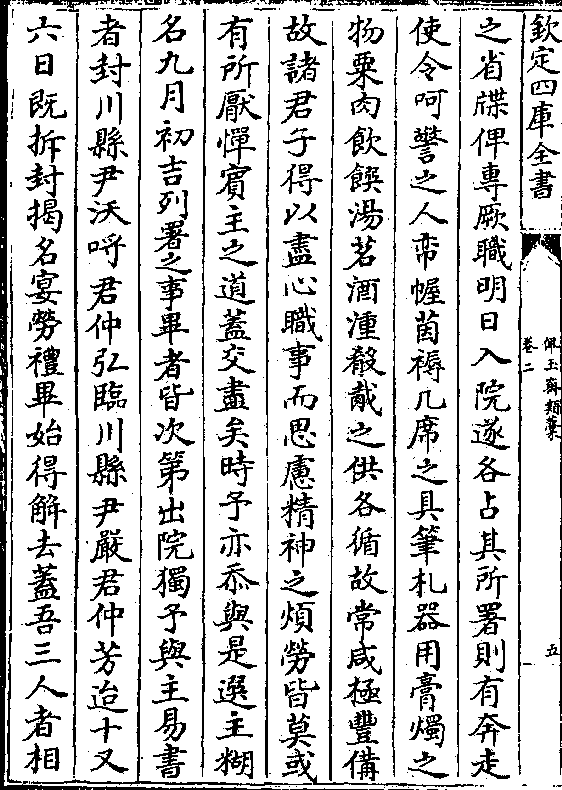 欽定四庫全書
佩玉齋類藁
卷二
五
之省牒俾專厥職明日入院遂各占其所署則有奔走
使令呵讐之人帟幄茵褥几席之具筆札器用膏燭之
物粟肉飲饌湯茗酒湩殽胾之供各循故常咸極豐備
故諸君子得以盡心職事而思慮精神之煩勞皆莫或
有所厭憚賓主之道蓋交盡矣時予亦忝與是選主糊
名九月初吉列署之事畢者皆次第出院獨予與主易書
者封川縣尹沃呼君仲弘臨川縣尹嚴君仲芳迨十又
六日既拆封揭名宴勞禮畢始得解去蓋吾三人者相